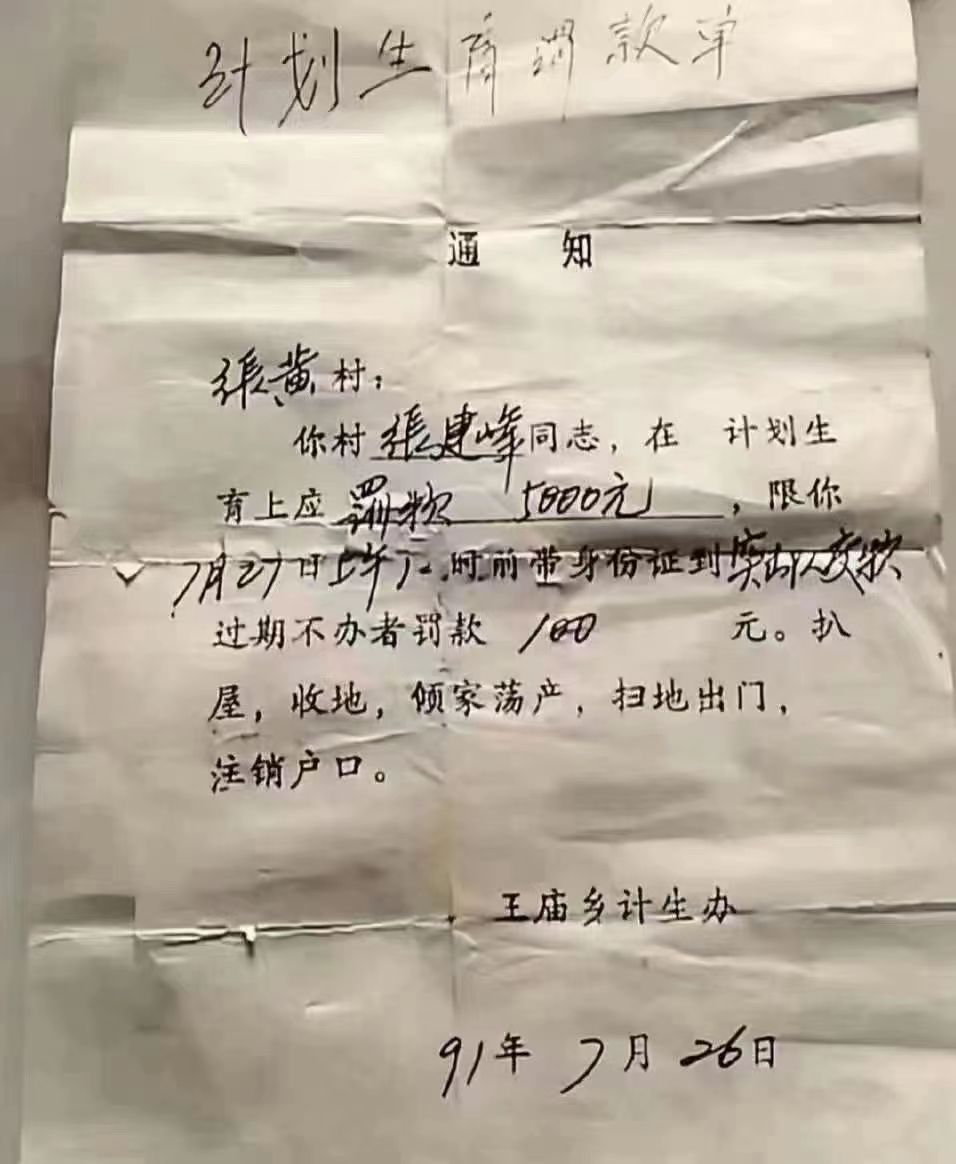 计划生育罚款单
通 知
张黄村：
你村张建峰同志，在 计划生
育上应罚款 5000元，限你
7月27日上午12时前带身份证到突击队交款
过期不办者罚款 100 元。扒
屋，收地，倾家荡产，扫地出门，
注销户口。
王庙乡计生办
91年 7月 26日